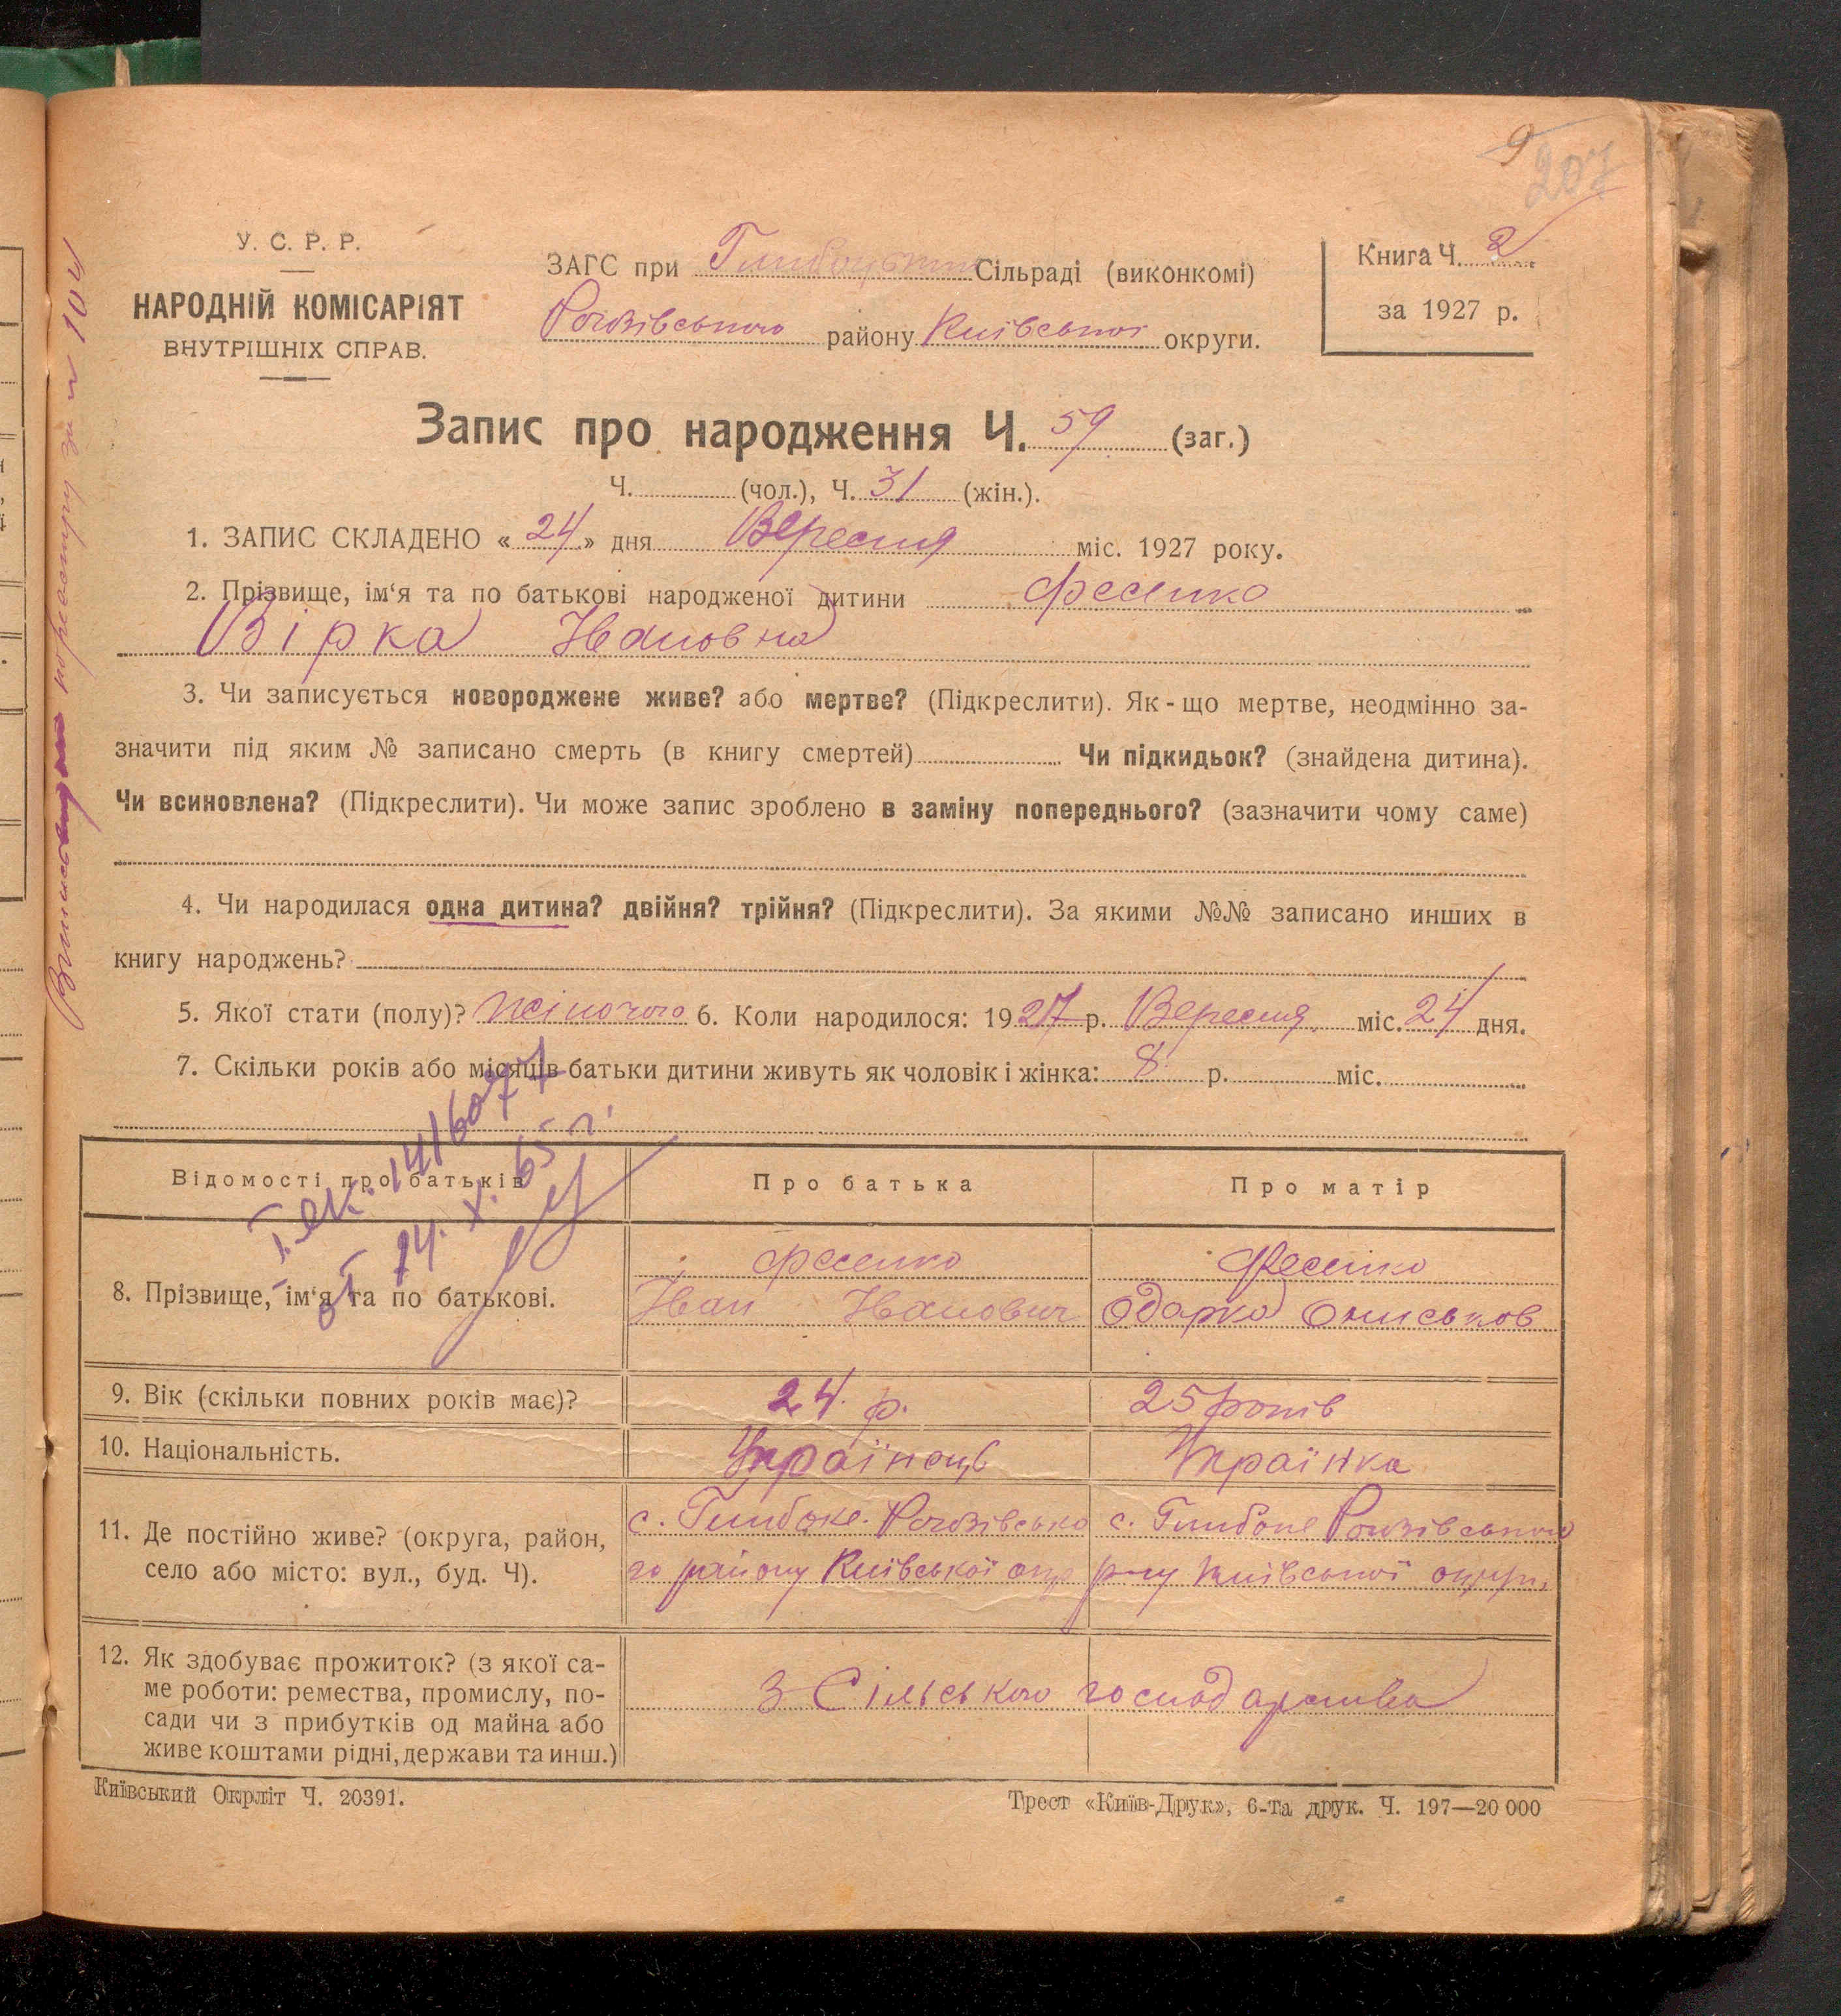 9
207
У. С. Р. Р.
НАРОДНІЙ КОМІСАРІЯТ
ВНУТРІШНІХ СПРАВ.
ЗАГС при Глибоцькій Сільраді (виконкомі)
Рогозівського району Київської округи.
Книга Ч. 2
за 1927 р.
Запис про народження Ч. 59 (заг.)
Ч. (чол.), Ч. 31 (жін.).
1. ЗАПИС СКЛАДЕНО « 24 » дня Вересня міс. 1927 року.
2. Прізвище, ім‘я та по батькові народженої дитини Фесенко
Вірка Івановна
3. Чи записується новороджене живе? або мертве? (Підкреслити). Як-що мертве, неодмінно за-
значити під яким № записано смерть (в книгу смертей) Чи підкидьок? (знайдена дитина).
Чи всиновлена? (Підкреслити). Чи може запис зроблено в заміну попереднього? (зазначити чому саме)
4. Чи народилася одна дитина? двійня? трійня? (Підкреслити). За якими №№ записано инших в
книгу народжень?
5. Якої стати (полу)? жіночого 6. Коли народилося: 1927 р. Вересня міс. 24 дня.
7. Скільки років або місяців батьки дитини живуть як чоловік і жінка: 8 р. міс.
Відомості про батьків Про батька Про матір
8. Прізвище, ім‘я та по батькові. Фесенко Іван Іванович Фесенко Одарка Ониськов
9. Вік (скільки повних років має)? 24. р. 25 років
10. Національність. Українець Українка
11. Де постійно живе? (округа, район,
село або місто: вул., буд. Ч).
с. Глибоке. Рогозівсько
го району Київської окр
с. Глибоке Рогозівського
р-ну Київської округи
12. Як здобуває прожиток? (з якої са-
ме роботи: ремества, промислу, по-
сади чи з прибутків од майна або
живе коштами рідні, держави та инш.)
З Сільського господарства
Київський Окрліт Ч. 20391.
Трест «Київ-Друк», 6-та друк. Ч. 197—20 000
по реєстру за № 104
от 14. X. 65 г.